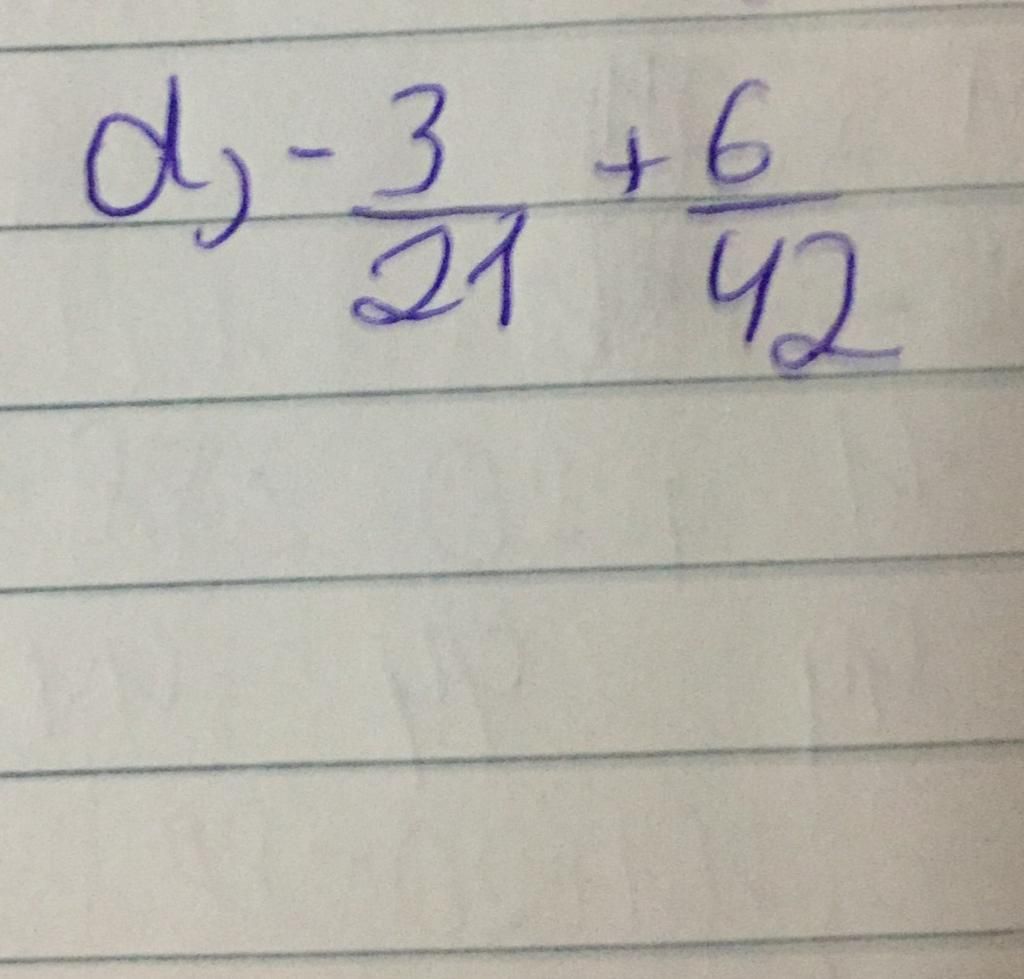 d, - 3/21 + 6/42